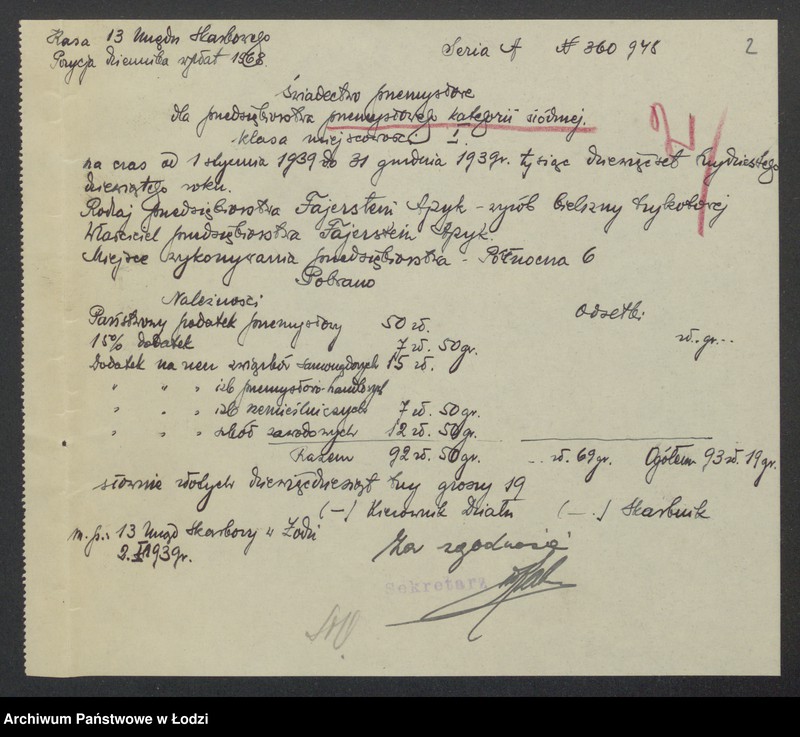 Kasa 13 Urzędu Skarbowego
Pozycja dziennika wpłat 1968.
Seria A № 360 948
2
Świadectwo przemysłowe
dla przedsiębiorstwa przemysłowego kategorii siódmej.
klasa miejscowości I.
na czas od 1 stycznia 1939 do 31 grudnia 1939r. tysiąc dziewięćset trzydziestego
dziewiątego roku.
Rodzaj przedsiębiorstwa Fajersztein Apyk - wyrób bielizny trykotowej
Właściciel przedsiębiorstwa Fajersztein Apyk.
Miejsce wykonywania przedsiębiorstwa - Północna 6
Pobrano
Należności
Odsetki
Państwowy podatek przemysłowy 50 zł.
15% dodatek 7 zł. 50 gr. zł. gr. --
Dodatek na rzecz związków samorządowych 15 zł.
" " " izb przemysłowo-handlowych
" " " izb rzemieślniczych 7 zł. 50 gr.
" " " szkół zawodowych 12 zł. 50 gr.
Razem 92 zł. 50 gr. -- zł. 69 gr. Ogółem 93 zł. 19 gr.
słownie złotych dziewięćdziesiąt trzy groszy 19
(-) Kierownik Działu (-.) Skarbnik
m.p.: 13 Urząd Skarbowy w Łodzi
2.I.1939r.
Za zgodność
Sekretarz